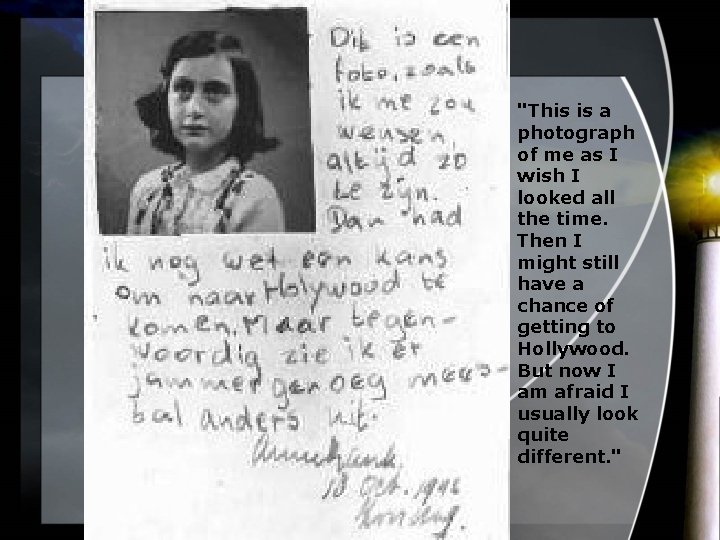 Dit is een
foto, zoals
ik me zou
wensen,
altijd zo
te zijn.
Dan had
ik nog wel een kans
om naar Holywood te
komen. Maar tegen-
woordig zie ik er
jammer genoeg mees-
tal anders uit.
Annefrank.
18 Oct. 1942
Zondag.
"This is a
photograph
of me as I
wish I
looked all
the time.
Then I
might still
have a
chance of
getting to
Hollywood.
But now I
am afraid I
usually look
quite
different."